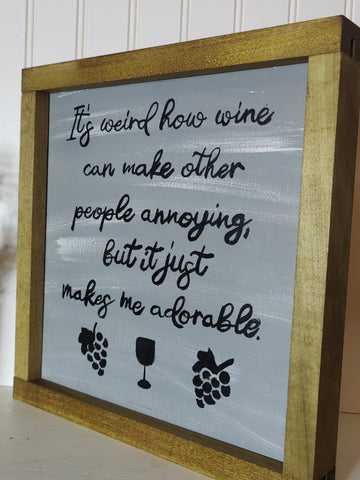 It's weird how wine
can make other
people annoying,
but it just
makes me adorable.